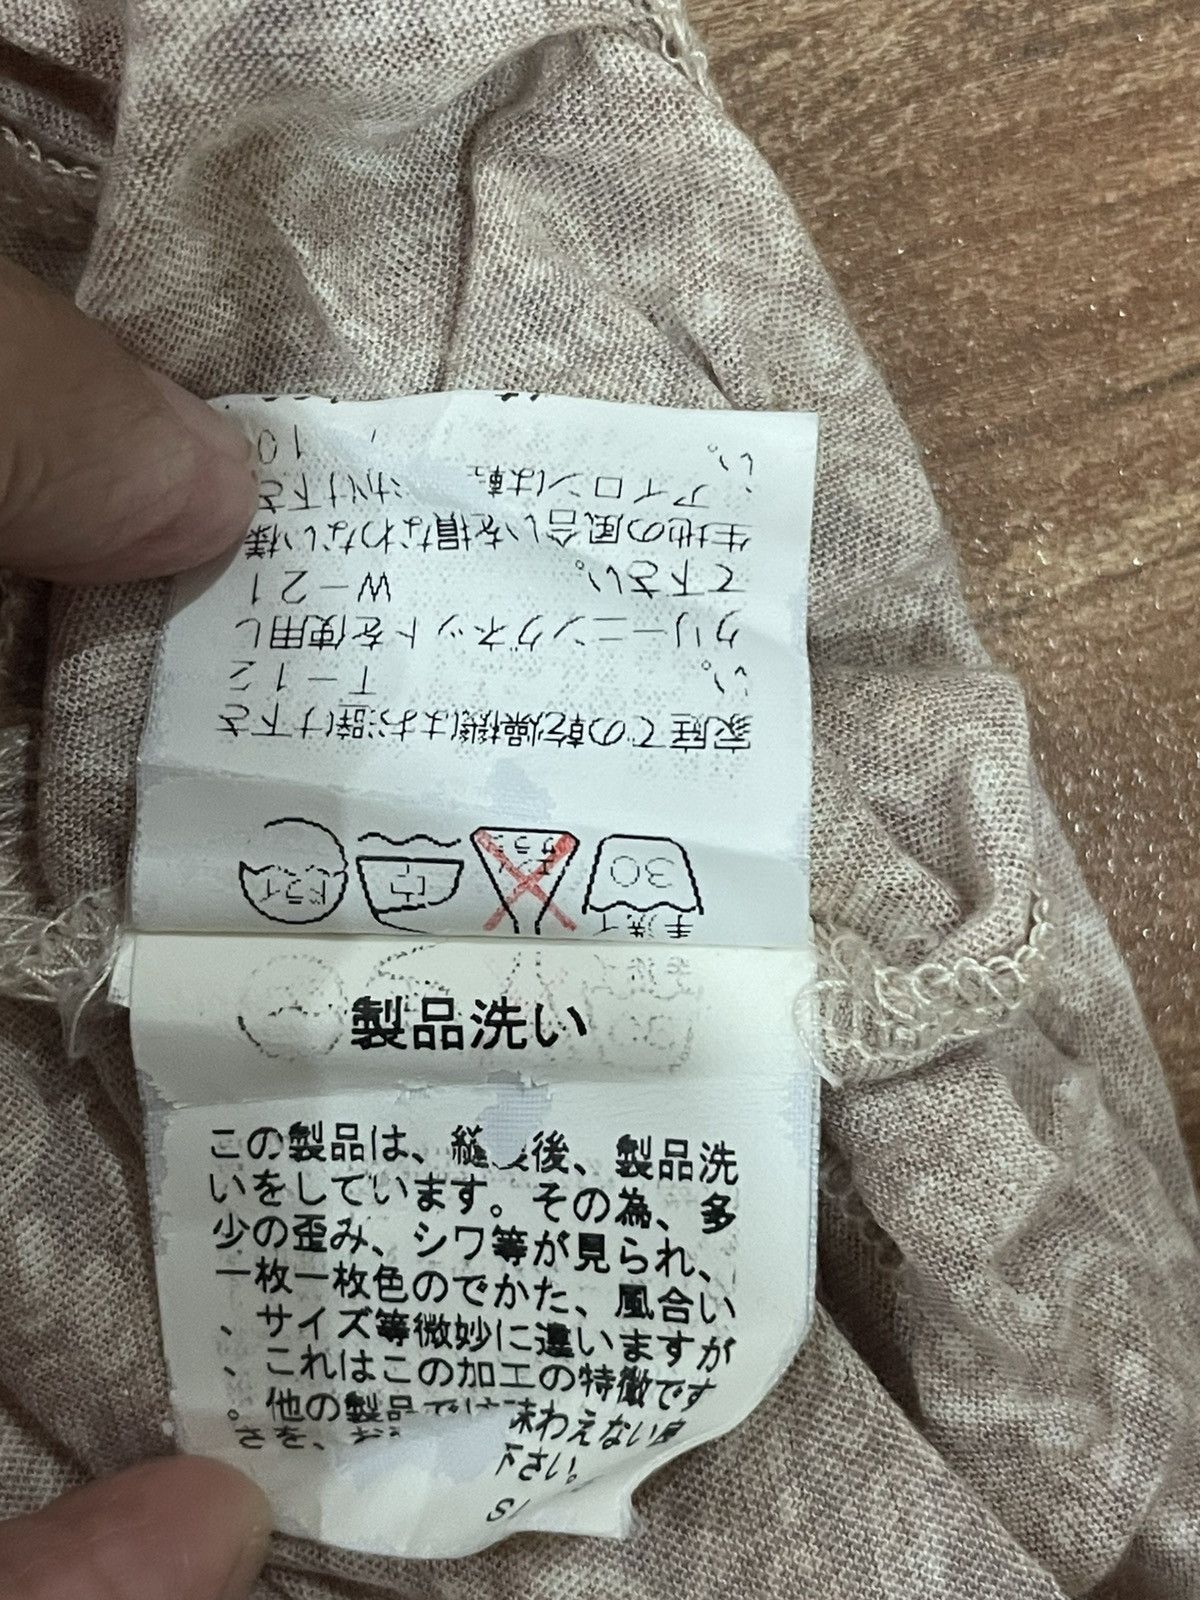 手洗イ
30
エンソサラシ
中
ドライ
家庭での乾燥機はお避け下さ
い。 T-12
クリーニングネットを使用し
て下さい。 W-21
生地の風合いを損なわない様
、アイロンは
かけ下さ
い。
製品洗い
この製品は、縫 後、製品洗
いをしています。その為、多
少の歪み、シワ等が見られ、
一枚一枚色のでかた、風合い
、サイズ等微妙に違いますが
、これはこの加工の特徴です
。他の製品では味わえない良
さを、お
下さい。